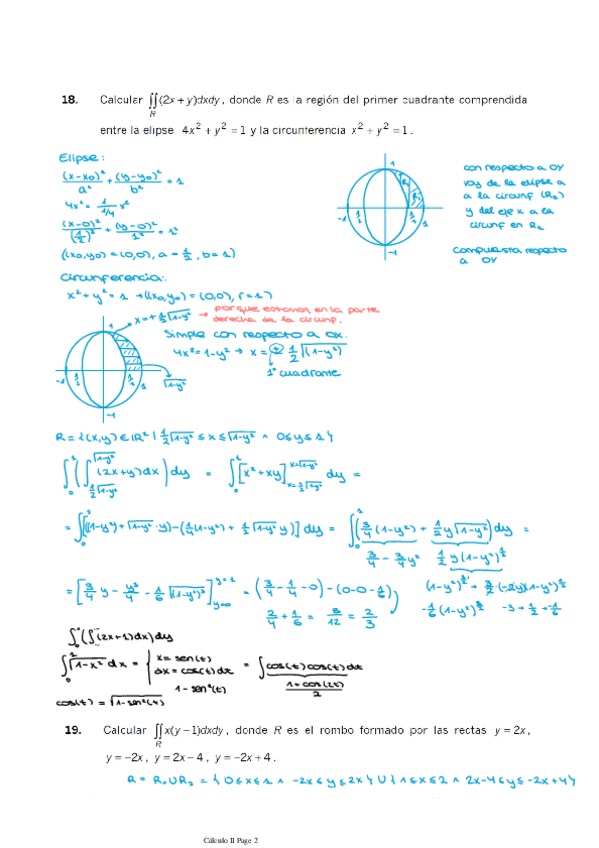 18. Calcular ∬(2x + y)dxdy, donde R es la región del primer cuadrante comprendida
R
entre la elipse 4x² + y² = 1 y la circunferencia x² + y² = 1.
Elipse:
(x-x₀)²/a² + (y-y₀)²/b² = 1
4x² = 1/(1/4) x²
(x-0)²/(1/2)² + (y-0)²/1² = 1²
((x₀,y₀) = (0,0), a = 1/2, b = 1)
con respecto a OY
voy de la elipse a
a la circunf (R₂)
y del eje x a la
circunf en R₁
compuesta respecto
a OY
Circunferencia:
x² + y² = 1 → ((x₀,y₀) = (0,0), r = 1)
x = + 1/2 √1-y² → porque estamos en la parte
derecha de la circunf.
Simple con respecto a OX.
4x² = 1-y² → x = ⊕ 1/2 √(1-y²)
1º cuadrante
√1-y²
-1
R = {(x,y) ∈ ℝ² | 1/2 √1-y² ≤ x ≤ √1-y² ∧ 0 ≤ y ≤ 1}
∫₀¹ (∫_{1/2 √1-y²}^{√1-y²} (2x+y)dx) dy = ∫₀¹ [x² + xy]_{x=1/2 √1-y²}^{x=√1-y²} dy =
= ∫₀¹ [((1-y²) + √1-y² · y) - (1/4 (1-y²) + 1/2 √1-y² y)] dy = ∫₀¹ (3/4 (1-y²) + 1/2 y √1-y²) dy =
3/4 - 3/4 y² 1/2 y (1-y²)^1/2
= [3/4 y - y³/4 - 1/6 √(1-y²)³]_{y=0}^{y=1} = (3/4 - 1/4 - 0) - (0-0-1/6)
(1-y²)^3/2 ' → 3/2 (-2y)(1-y²)^1/2
2/4 + 1/6 = 8/12 = 2/3
-1/6 (1-y²)^3/2 -3 → 1/2 → -1/6
∫₀¹ (∫ (2x+1)dx) dy
∫√1-x² dx = { x = sen(t) dx = cos(t)dt = ∫ cos(t) cos(t) dt
1 - sen²(t)
1 + cos(2t) / 2
cos(t) = √1-sen²(t)
19. Calcular ∬x(y − 1)dxdy, donde R es el rombo formado por las rectas y = 2x,
R
y = −2x, y = 2x − 4, y = −2x + 4.
R = R₁ ∪ R₂ = { 0 ≤ x ≤ 1 ∧ -2x ≤ y ≤ 2x } ∪ { 1 ≤ x ≤ 2 ∧ 2x-4 ≤ y ≤ -2x+4 }
Cálculo II Page 2